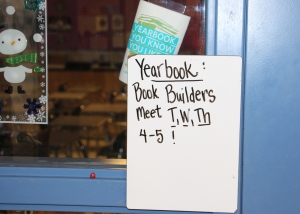 YEARBOOK
YOU KNOW
Yearbook:
Book Builders
Meet T, W, Th
4-5 !